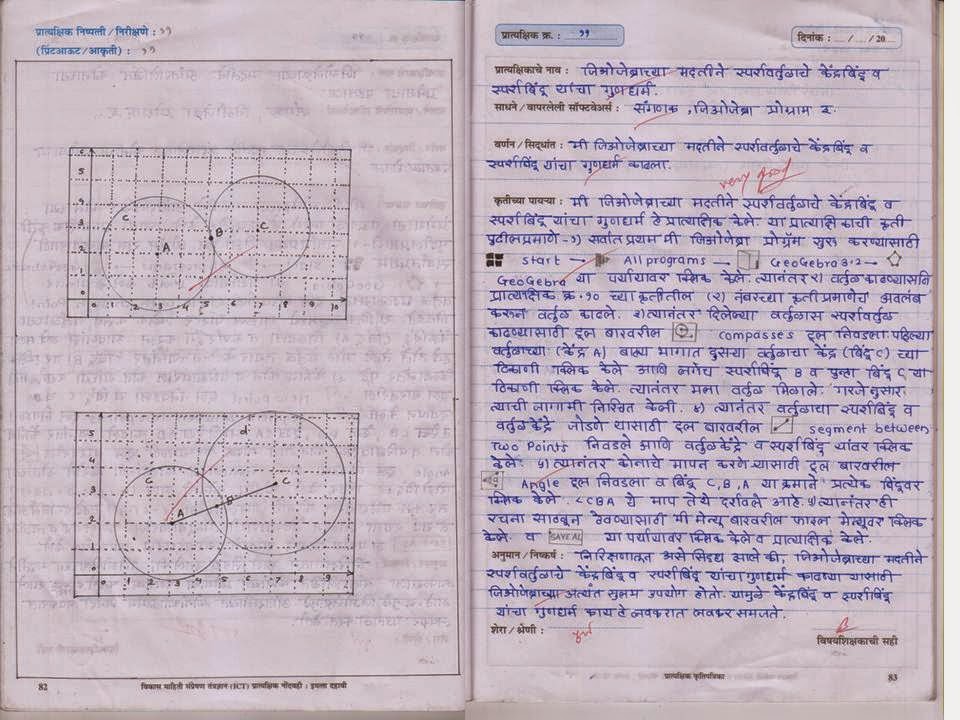 प्रात्यक्षिक निष्पत्ती / निरीक्षणे : ११
(प्रिंटआऊट / आकृती) : ११
5
4
3
2
1
0
0 1 2 3 4 5 6 7 8 9 10
C
A
B
C
5
4
3
2
1
0
0 1 2 3 4 5 6 7 8 9 10
C
d
A
B
C
82
विकास माहिती संप्रेषण तंत्रज्ञान (ICT) प्रात्यक्षिक नोंदवही : इयत्ता दहावी
प्रात्यक्षिक क्र. : ११
दिनांक : ... / ... / 20
प्रात्यक्षिकाचे नाव : जिओजेब्राच्या मदतीने स्पर्शवर्तुळाचे केंद्रबिंदू व
स्पर्शबिंदू यांचा गुणधर्म.
साधने / वापरलेली सॉफ्टवेअर्स : संगणक, जिओजेब्रा प्रोग्राम इ.
वर्णन / सिद्धांत : मी जिओजेब्राच्या मदतीने स्पर्शवर्तुळाचे केंद्रबिंदू व
स्पर्शबिंदू यांचा गुणधर्म काढला.
very good
कृतीच्या पायऱ्या : मी जिओजेब्राच्या मदतीने स्पर्शवर्तुळाचे केंद्रबिंदू व
स्पर्शबिंदू यांचा गुणधर्म हे प्रात्यक्षिक केले. या प्रात्यक्षिकाची कृती
पुढीलप्रमाणे - १) सर्वात प्रथम मी जिओजेब्रा प्रोग्रॅम सुरू करण्यासाठी
Start → All programs → GeoGebra 3.2 →
GeoGebra या पर्यायावर क्लिक केले. त्यानंतर २) वर्तुळ काढण्यासाठी
प्रात्यक्षिक क्र. १० च्या कृतीतील (२) नंबरच्या कृतीप्रमाणेच अवलंब
करून वर्तुळ काढले. ३) त्यानंतर दिलेल्या वर्तुळास स्पर्शवर्तुळ
काढण्यासाठी टूल बारवरील compasses टूल निवडला. पहिल्या
वर्तुळाच्या (केंद्र A) बाह्य भागात दुसऱ्या वर्तुळाचा केंद्र (बिंदू C) च्या
ठिकाणी क्लिक केले आणि लगेच स्पर्शबिंदू B व पुन्हा बिंदू C या
ठिकाणी क्लिक केले. त्यानंतर मला वर्तुळ मिळाले. गरजेनुसार
त्याची जागा मी निश्चित केली. ४) त्यानंतर वर्तुळाचा स्पर्शबिंदू व
वर्तुळकेंद्रे जोडणे यासाठी टूल बारवरील segment between
Two Points निवडले आणि वर्तुळकेंद्रे व स्पर्शबिंदू यांवर क्लिक
केले. ५) त्यानंतर कोनाचे मापन करणे यासाठी टूल बारवरील
Angle टूल निवडला व बिंदू C, B, A या क्रमाने प्रत्येक बिंदूवर
क्लिक केले. ∠CBA चे माप तेथे दर्शवले आहे. ६) त्यानंतर ही
रचना साठवून ठेवण्यासाठी मी मेन्यू बारवरील फाईल मेन्यूवर क्लिक
केले. व SAVE AS या पर्यायावर क्लिक केले व प्रात्यक्षिक केले.
अनुमान / निष्कर्ष : निरिक्षणातून असे सिद्ध झाले की, जिओजेब्राच्या मदतीने
स्पर्शवर्तुळाचे केंद्रबिंदू व स्पर्शबिंदू यांचा गुणधर्म काढण्या यासाठी
जिओजेब्राच्या अत्यंत सुलभ उपयोग होतो. यामुळे केंद्रबिंदू व स्पर्शबिंदू
यांचा गुणधर्म काय हे लवकरात लवकर समजते.
शेरा / श्रेणी : पूर्ण
विषयशिक्षकाची सही
प्रात्यक्षिक कृतिपत्रिका
83